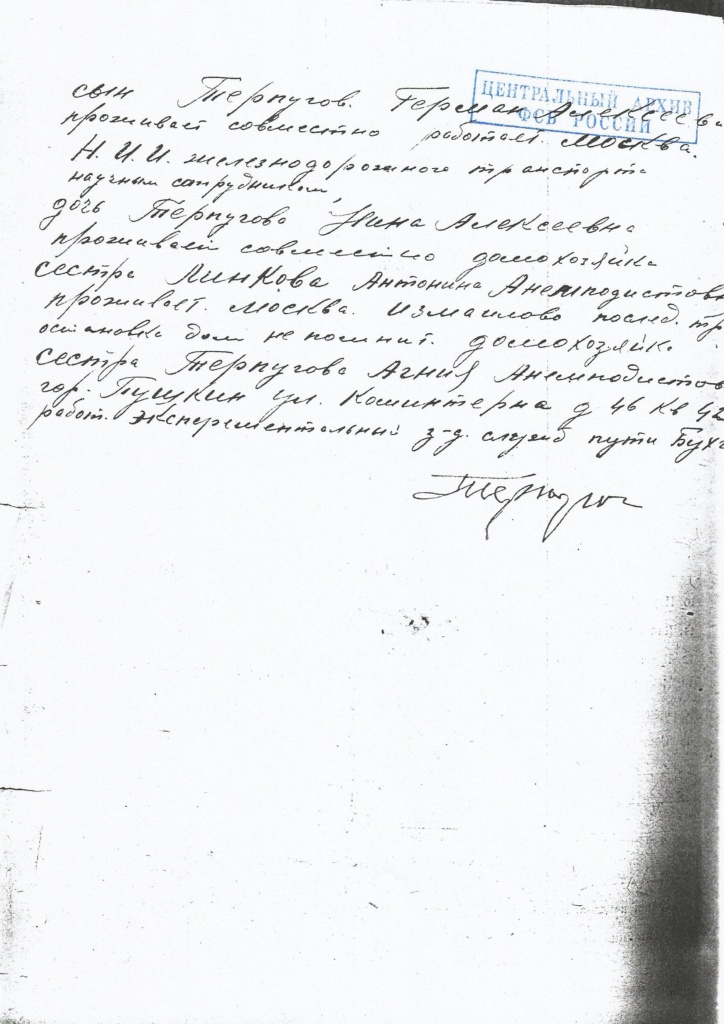 ЦЕНТРАЛЬНЫЙ АРХИВ
ФСБ РОССИИ
сын Терпугов. Герман Алексееви
проживает совместно работает. Москва.
Н. И. И. железнодорожного транспорта
научным сотрудником,
дочь Терпугова Нина Алексеевна
проживает совместно домохозяйка
сестра Линкова Антонина Анемподистовн
проживает. Москва. Измаилово послед. тр
остановка дом не помнит. домохозяйка
сестра Терпугова Агния Анемподистов
гор. Пушкин ул. Коминтерна д 46 кв 42
работ. Эксперементальный з-д. служб пути Бухг
Терпугов